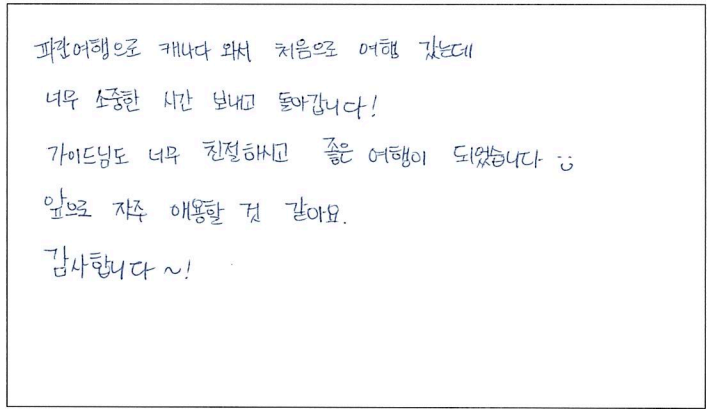 파란여행으로 캐나다 와서 처음으로 여행 갔는데
너무 소중한 시간 보내고 돌아갑니다!
가이드님도 너무 친절하시고 좋은 여행이 되었습니다 :)
앞으로 자주 애용할 것 같아요.
감사합니다~!